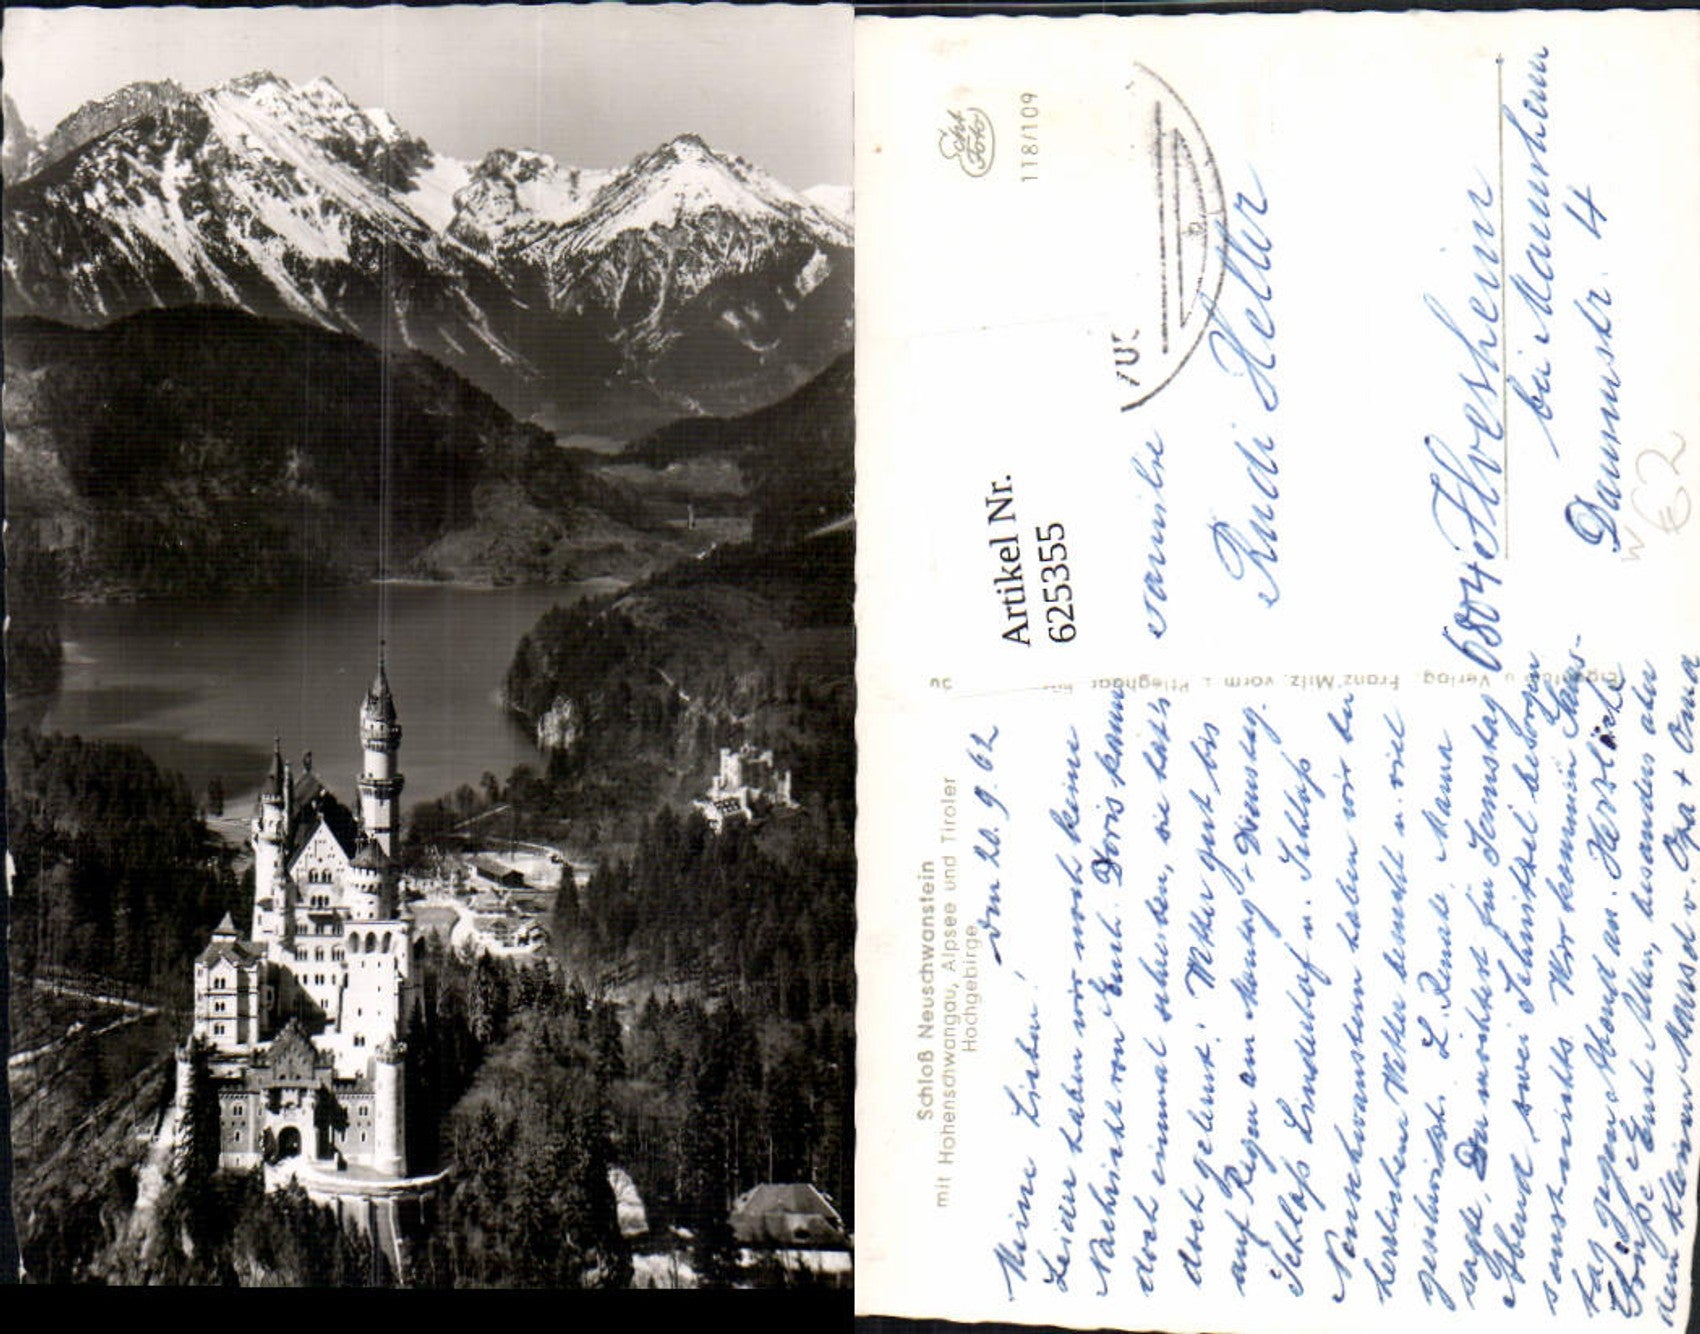 Schloß Neuschwanstein
mit Hohenschwangau, Alpsee und Tiroler
Hochgebirge
Echt
Foto
118/109
Artikel Nr.
625355
u. Verlag: Franz Milz, vorm.
den 20.9.62
Meine Lieben!
Leider haben wir noch keine
Nachricht von Euch. Doris kann
doch einmal schreiben, sie hat's
doch gelernt! Wetter gut bis
auf Regen am Montag + Dienstag.
Schloß Linderhof u. Schloß
Neuschwanstein haben wir bei
herrlichem Wetter besucht u. viel
geschwitzt. L. Renate, Mama
sagte, Du möchtest für Samstag
Abend zwei Schnitzel besorgen
sonst nichts. Wir kommen Sams-
tag gegen Abend an. Herzliche
Grüße Euch allen, besonders aber
dem kleinen v. Opa + Oma
Familie
Rudi Heller
6804 Ilvesheim
bei Mannheim
Dammstr. 4
W
€2